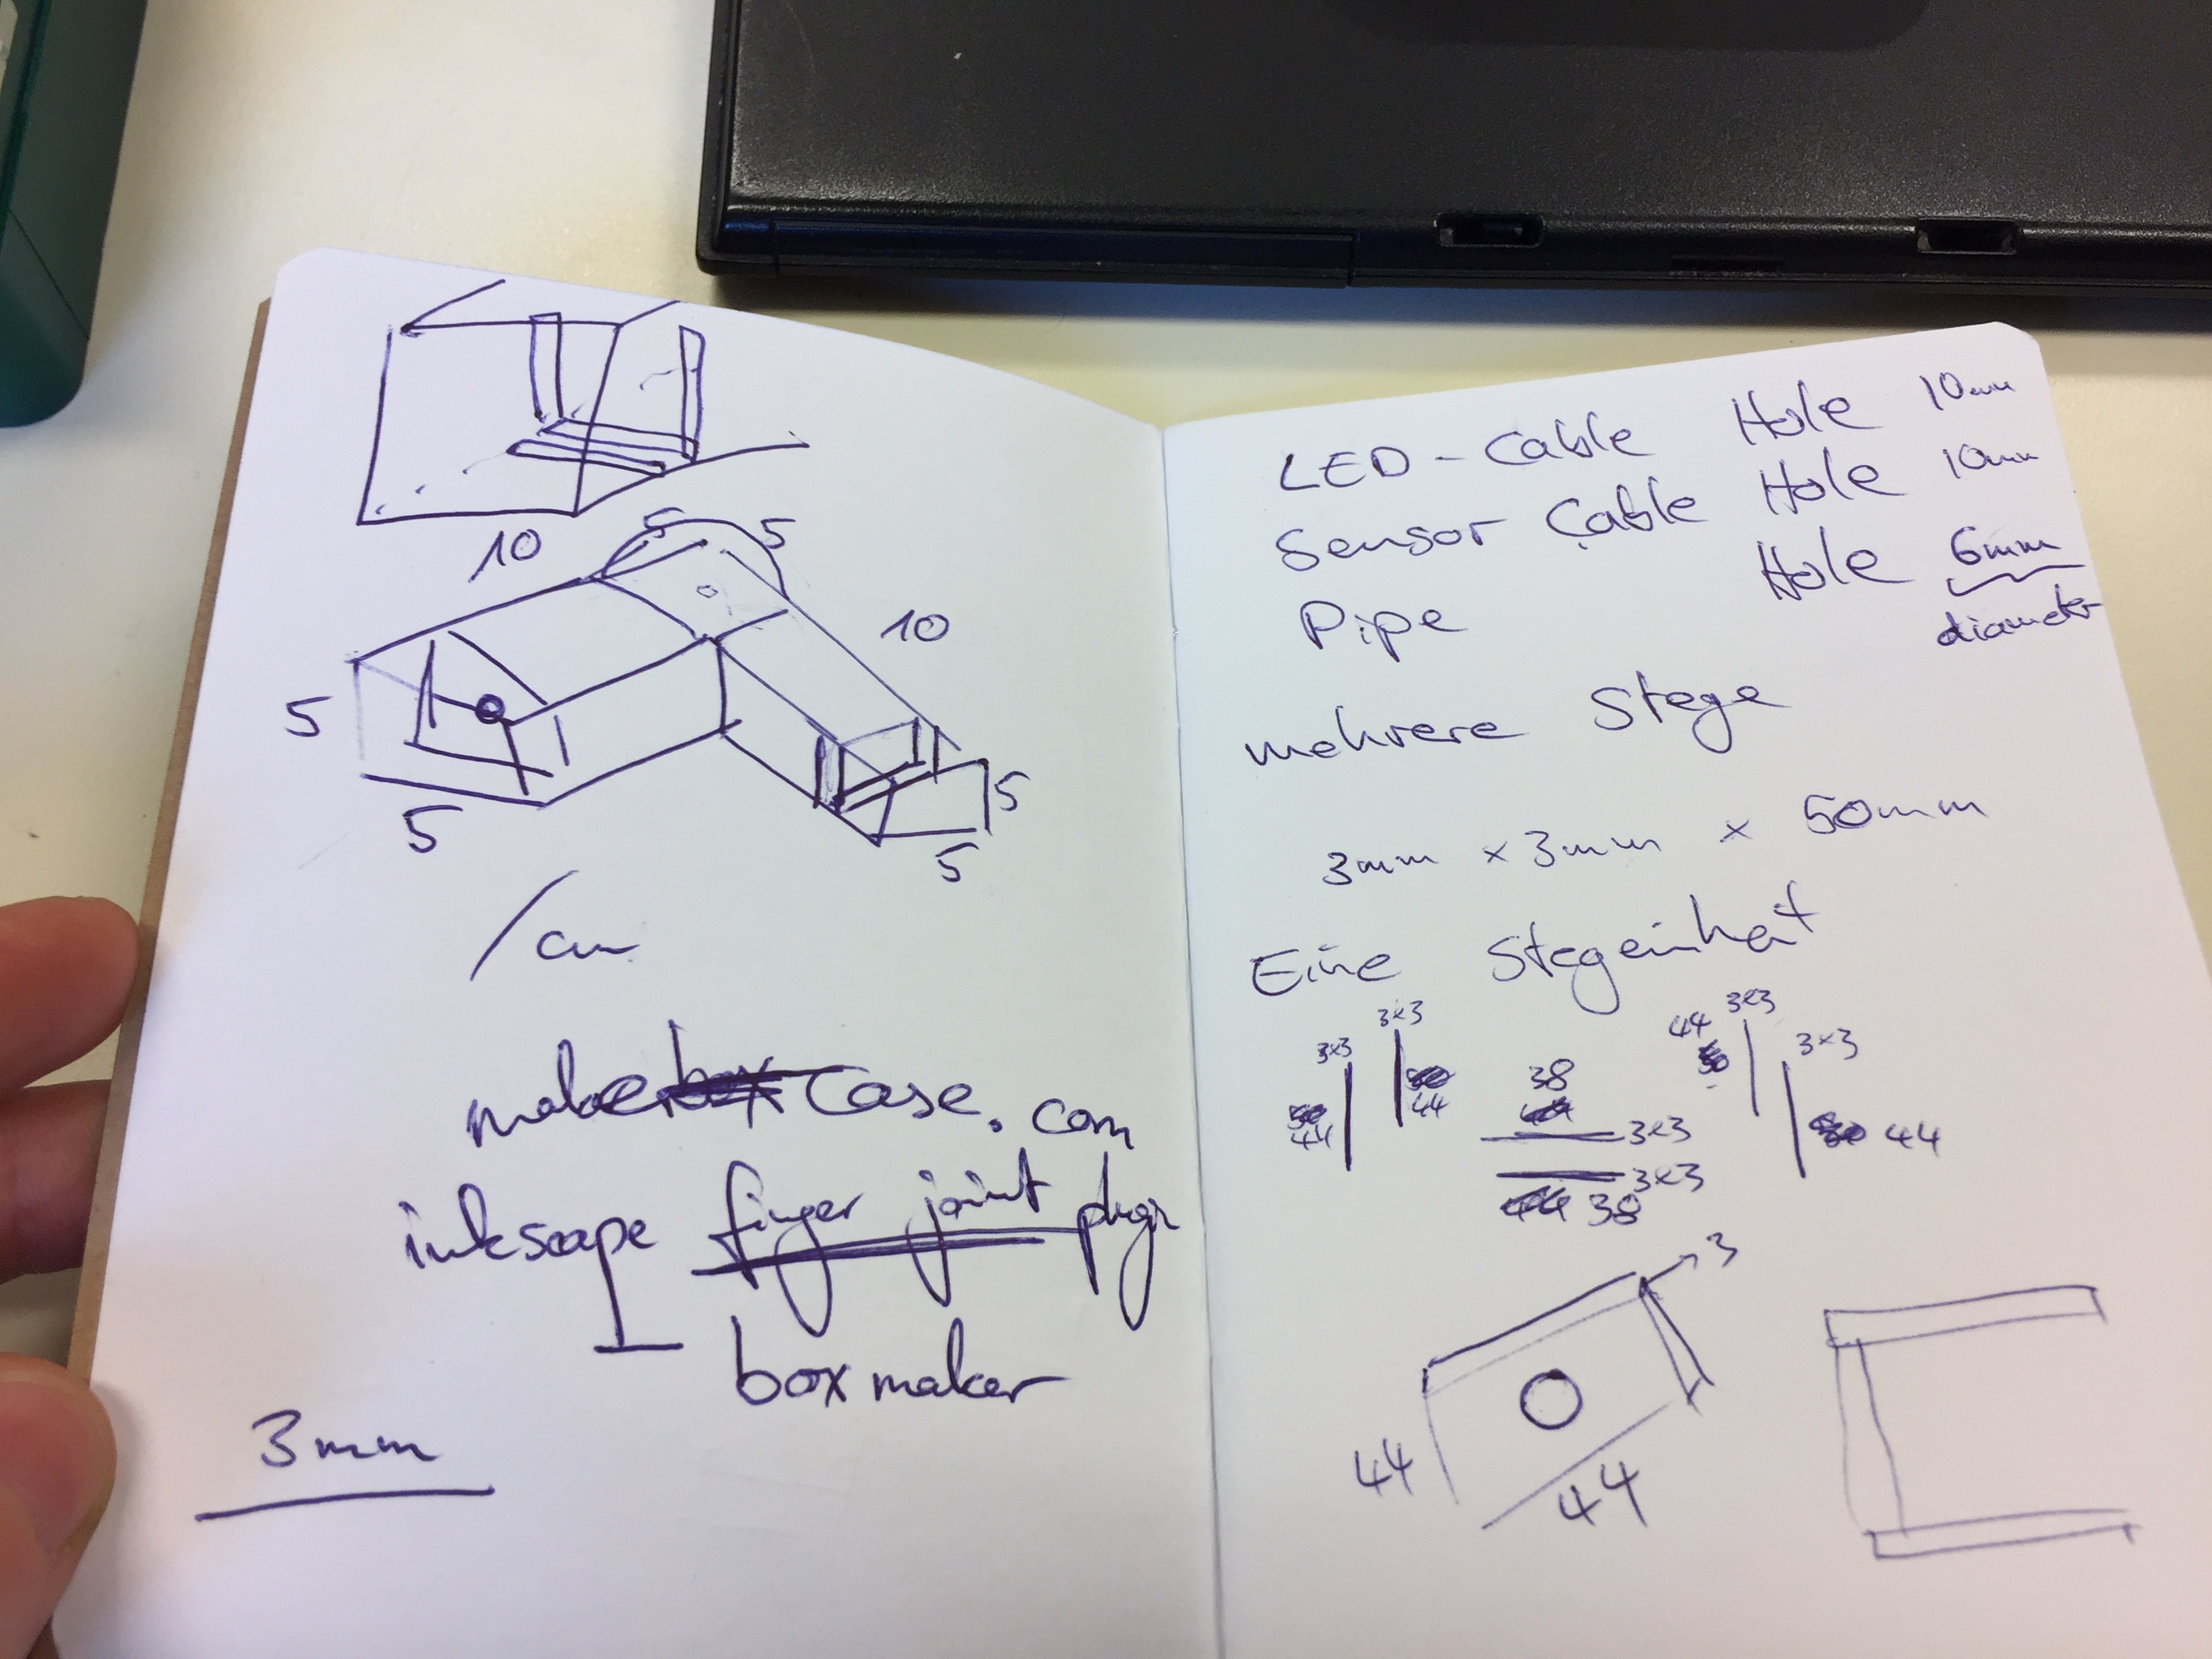 5
5
10
5
5
10
5
5
cm
makeCase.com
inkscape finger joint
box maker
3mm
LED-Cable Hole 10mm
Sensor Cable Hole 10mm
Pipe Hole 6mm
diameter
mehrere Stege
3mm x 3mm x 50mm
Eine Stegeinheit
3x3
44
3x3
44
38
3x3
38
3x3
44
3x3
3x3
44
44
44
3